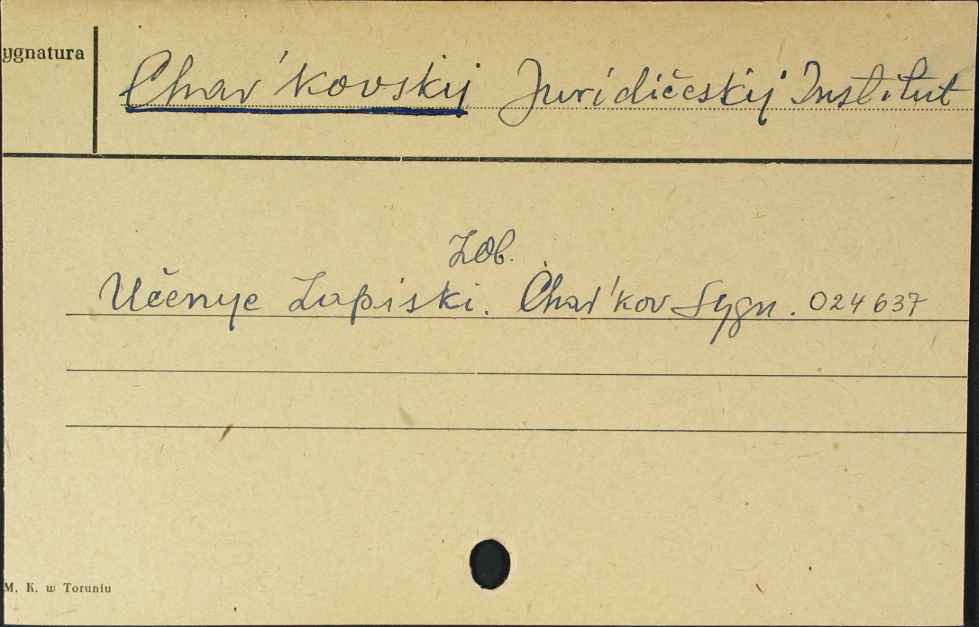 ygnatura
Char'kovskij Juridičeskij Institut
Zob.
Učenye Zapiski. Char'kov Sygn. 024637
M. K. w Toruniu